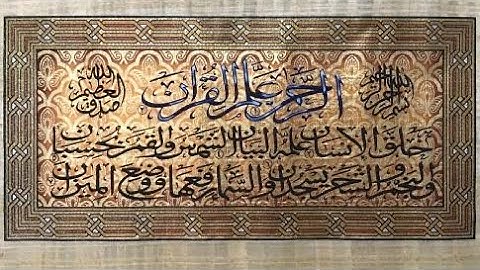 بسم الله الرحمن الرحيم
الرحمن علم القرآن
صدق الله العظيم
خلق الإنسان علمه البيان الشمس والقمر بحسبان
والنجم والشجر يسجدان والسماء رفعها ووضع الميزان